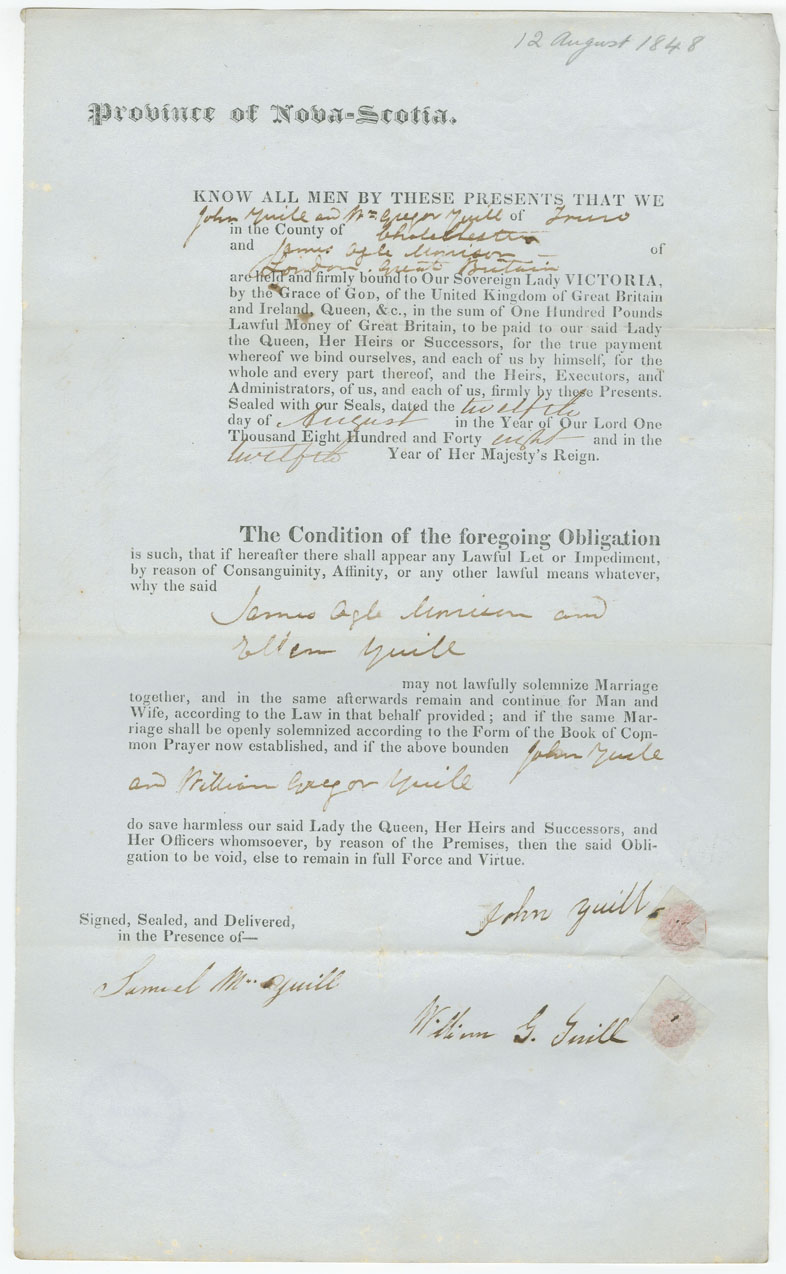 12 August 1848
Province of Nova-Scotia.
KNOW ALL MEN BY THESE PRESENTS THAT WE
John Yuill and Wm Gregor Yuill of Truro
in the County of Cholchester
and James Ogle Morrison — of
London. Great Britain
are held and firmly bound to Our Sovereign Lady VICTORIA,
by the Grace of GOD, of the United Kingdom of Great Britain
and Ireland, Queen, &c., in the sum of One Hundred Pounds
Lawful Money of Great Britain, to be paid to our said Lady
the Queen, Her Heirs or Successors, for the true payment
whereof we bind ourselves, and each of us by himself, for the
whole and every part thereof, and the Heirs, Executors, and
Administrators, of us, and each of us, firmly by these Presents.
Sealed with our Seals, dated the twelfth
day of August in the Year of Our Lord One
Thousand Eight Hundred and Forty eight and in the
twelfth Year of Her Majesty's Reign.
The Condition of the foregoing Obligation
is such, that if hereafter there shall appear any Lawful Let or Impediment,
by reason of Consanguinity, Affinity, or any other lawful means whatever,
why the said
James Ogle Morrison and
Ellen Yuill
may not lawfully solemnize Marriage
together, and in the same afterwards remain and continue for Man and
Wife, according to the Law in that behalf provided; and if the same Mar-
riage shall be openly solemnized according to the Form of the Book of Com-
mon Prayer now established, and if the above bounden John Yuill
and William Gregor Yuill
do save harmless our said Lady the Queen, Her Heirs and Successors, and
Her Officers whomsoever, by reason of the Premises, then the said Obli-
gation to be void, else to remain in full Force and Virtue.
John Yuill
Signed, Sealed, and Delivered,
in the Presence of—
Samuel Yuill
William G. Yuill